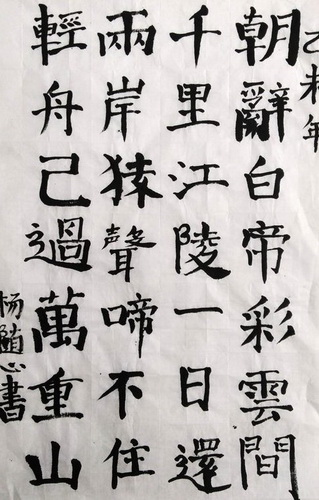 乙未年
朝辭白帝彩雲間
千里江陵一日還
兩岸猿聲啼不住
輕舟己過萬重山
杨随心書